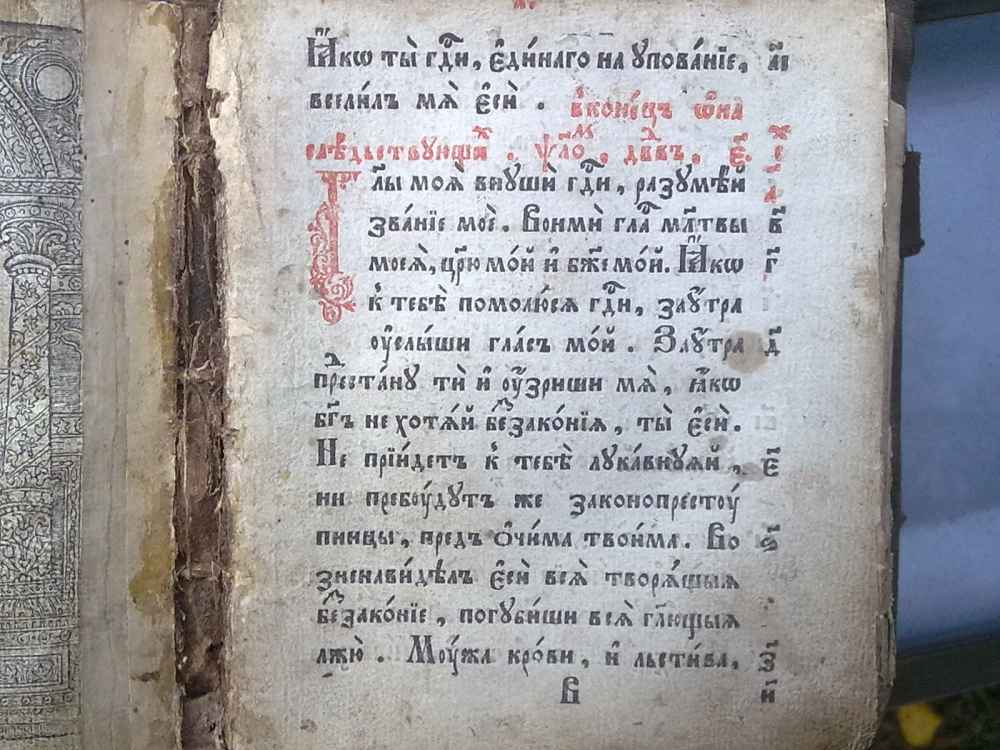 Ꙗ҆́кѡ ты̀ гдⷭ҇и, є҆ди́наго на упова́нїе, а҃і
вселил̾ъ мѧ̀ є҆сѝ. в̾коне́цъ ѡ҆ на
слѣ́дьствующиⷯ. ѱⷧ҇оⷨ, двⷣвъ, є҃.
Гл҃ы моѧ̀ внушѝ гдⷭ҇и, разумѣ́й а҃
зва́нїе моѐ. Вонмѝ глаⷭ҇ мл҃твы в҃
моеѧ̀, цр҃ю мо́й и҆ бж҃е мо́й. Ꙗ҆́кѡ г҃
к̾ тебѣ̀ помолю́сѧ гдⷭ҇и, заꙋ́тра
оу҆слы́ши гла́съ мо́й. Заꙋ́тра д҃
преⷣста́ну тѝ и҆ оу҆́зриши мѧ̀, ꙗ҆́кѡ
бг҃ъ не хотѧ́й бе̾зако́нїѧ, ты̀ є҆сѝ.
Не прїи́детъ к̾ тебѣ̀ лука́внуѧй, є҃
ни пребоу́дутъ же законопрестоу́
пницы, предъ ѻ҆чи́ма твои́ма. Во ѕ҃
зненави́дѣлъ є҆сѝ всѧ̀ творѧ́щыѧ
бе̾зако́нїе, погуби́ши всѧ̀ гл҃ющыѧ
лжю̀. Моу́жа кро́ви, и҆ льсти́ва, з҃
в и҃